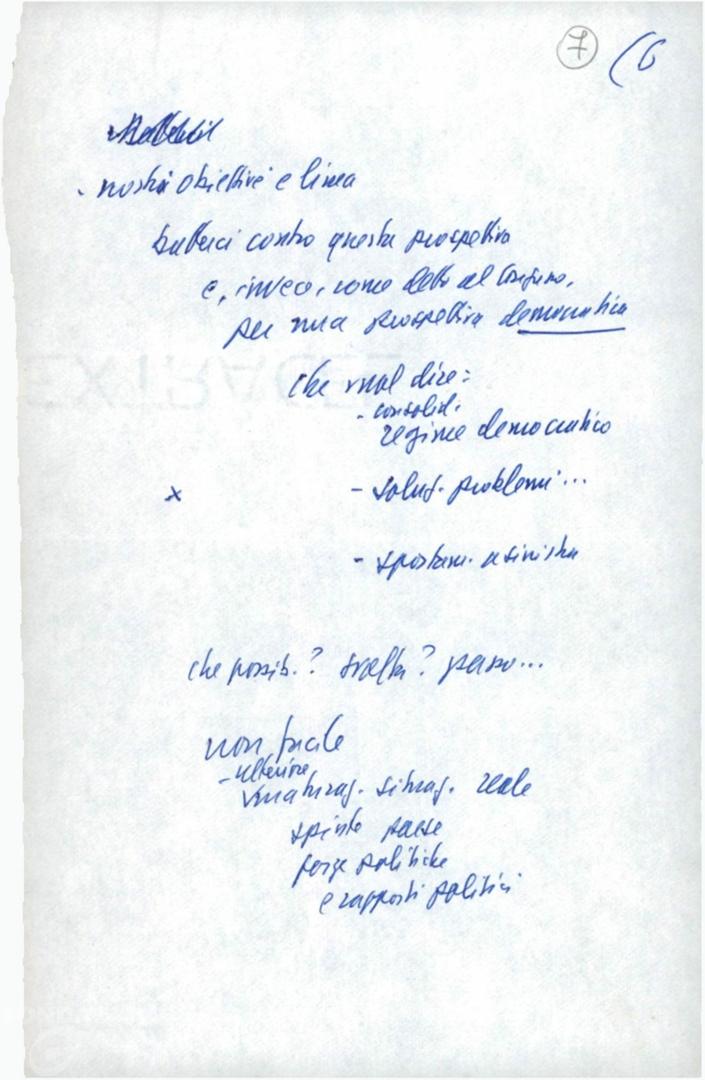 7 (6
- nostri obiettivi e linea
batterci contro questa prospettiva
e, invece, come detto al
per una prospettiva democratica
che vuol dire:
- consolid.
regime democratico
x - soluz. problemi...
- spostam. a sinistra
che possib.? svolta? passo...
non facile
- ulteriore
maturaz. situaz. reale
spinte paese
forze politiche
e rapporti politici